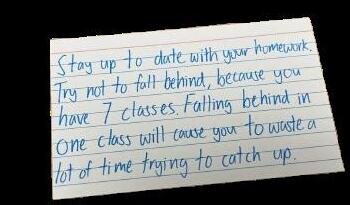 Stay up to date with your homework.
Try not to fall behind, because you
have 7 classes. Falling behind in
one class will cause you to waste a
lot of time trying to catch up.